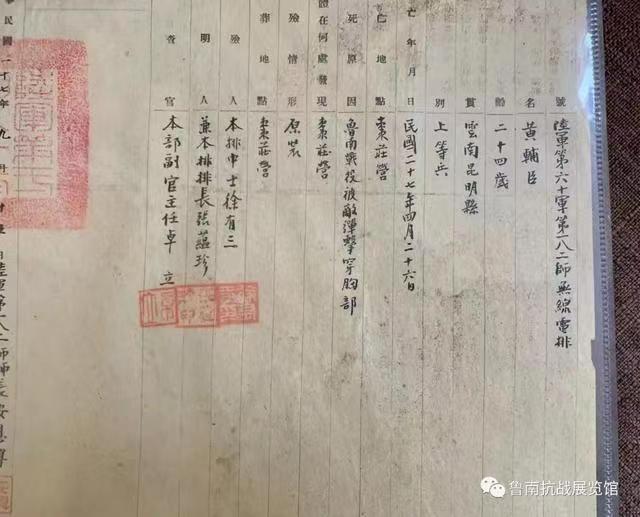 號 陸軍第六十軍第一八二師無線電排
名 黃輔臣
齡 二十四歲
貫 雲南昆明縣
別 上等兵
亡年月日 民國二十七年四月二十六日
亡地點 棗莊營
死原因 魯南戰役被敵彈擊穿胸部
體在何處發現 棗莊營
殮情形 原裝
葬地點 棗莊營
殮人 本排中士徐有三
明人 兼本排排長張蘊珍
查官 本部副官主任卓立
民國二十七年九月 日陸軍第一八二師師長安恩溥
魯南抗战展览馆